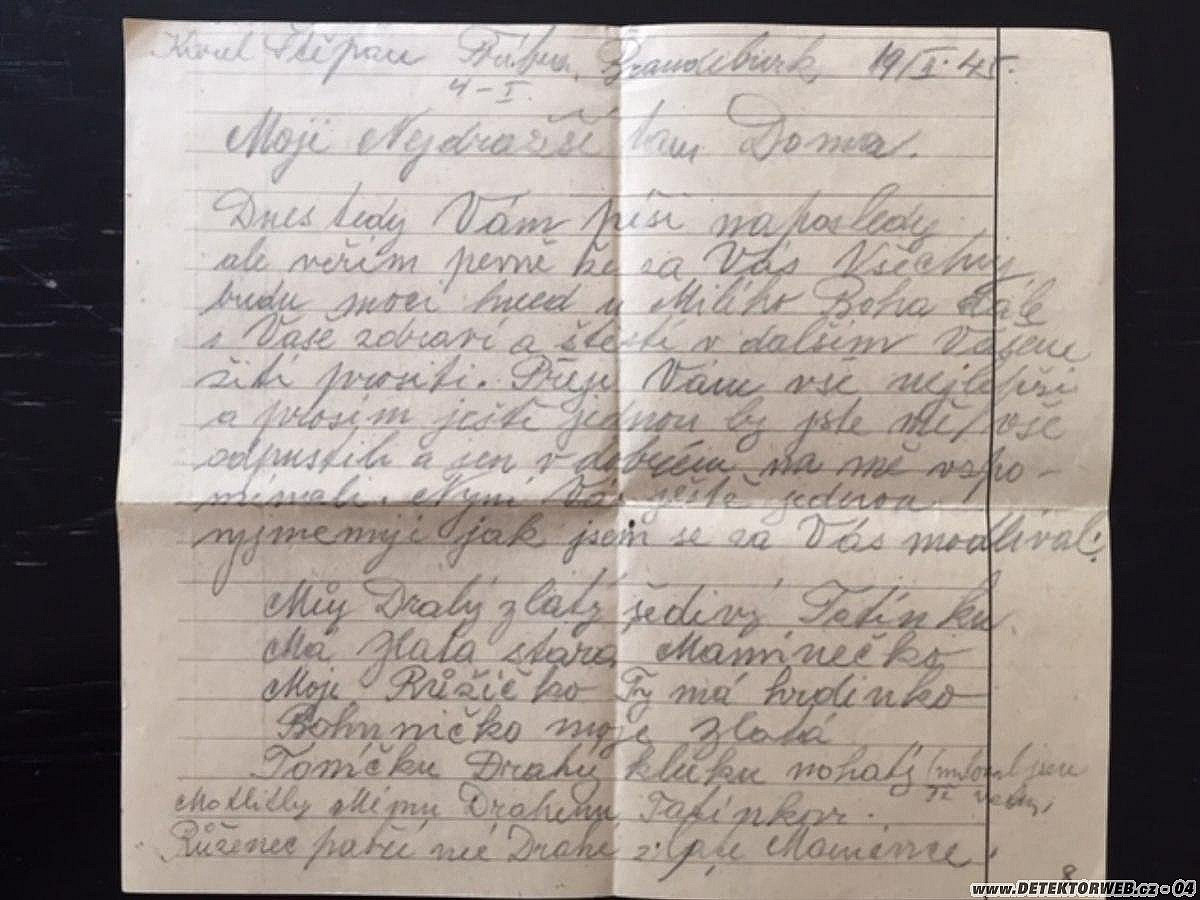 Karel Štěpán Brandeburk, 19/I. 45.
4-I.
Moji Nejdražší tam Doma.
Dnes tedy Vám píši naposledy
ale věřím pevně že za Vás Všechny
budu moci hned u Milího Boha dále
s Vaše zdraví a štěstí v dalším
žití prositi. Přeji Vám vše nejlepší
a prosím ještě jednou by jste mě vše
odpustili a jen v dobrém na mě vzpo-
mínali. Nyní Vás ještě jednou
vyjmenuji jak jsem se za Vás modlíval:
Můj Drahý zlatý šedivý Tatínku
Má zlatá stará Maminečko
Moje Růžičko Ty má hrdinko
Bohunničko moje zlatá
Toníčku Drahý kluku nohatý jsem
Ti
Motlitby Mímu Drahému Tatínkovi.
Růženec patří né Drahé zlaté Mamince.
8
www.DETEKTORWEB.cz - 04